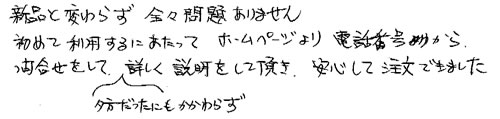 新品と変わらず 全々問題ありません
初めて利用するにあたって ホームページより 電話番号から、
問合せをして、詳しく説明をして頂き、安心して注文できました
夕方だったにもかかわらず